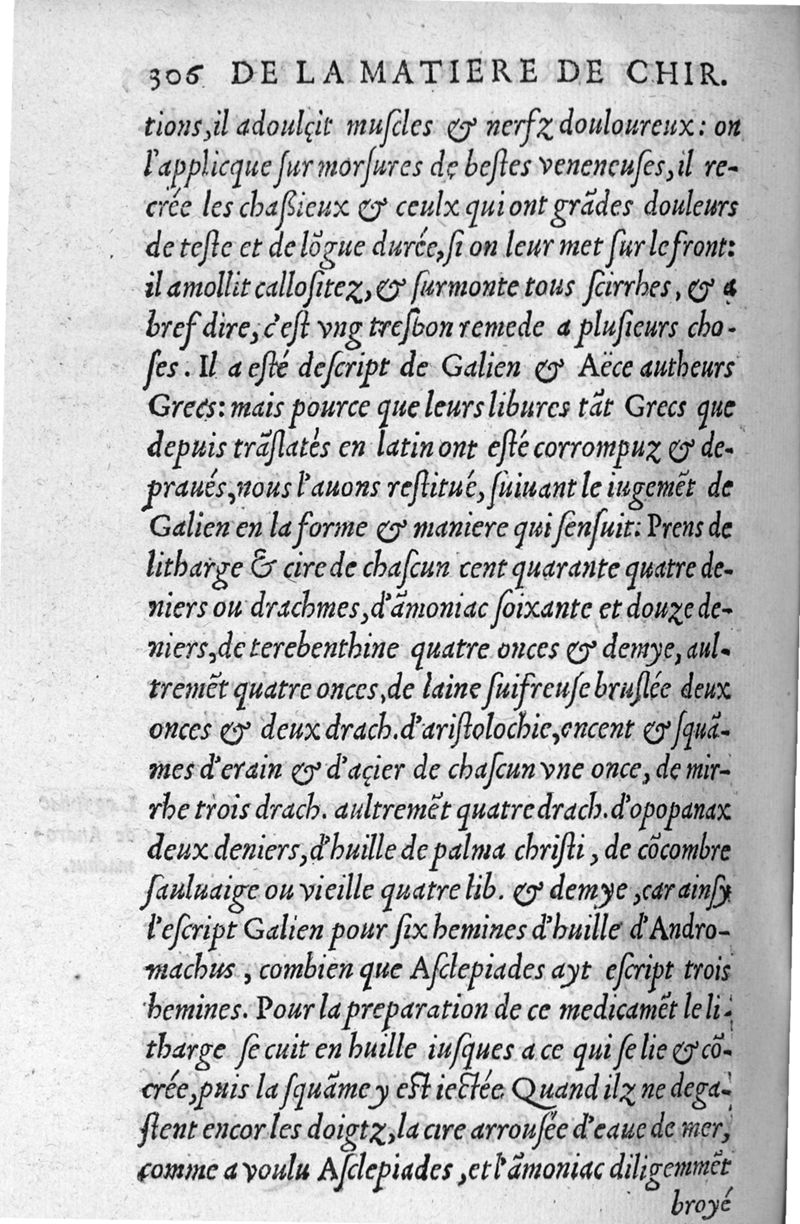 306 DE LA MATIERE DE CHIR.
tions,il adoulçit muſcles & nerfz douloureux: on
l'applicque ſur morſures dę beſtes veneneuſes,il re-
crée les chaßieux & ceulx qui ont grãdes douleurs
de teſte et de lõgue durée,ſi on leur met ſur le front:
il amollit calloſitez,& ſurmonte tous ſcirrhes, & a
bref dire, c'eſt vng treſbon remede a pluſieurs cho-
ſes. Il a eſté deſcript de Galien & Aëce autheurs
Grecs: mais pource que leurs libures tãt Grecs que
depuis trãſlatés en latin ont eſté corrompuz & de-
praués,nous l'auons reſtitué, ſuiuant le iugemẽt de
Galien en la forme & maniere qui ſenſuit: Prens de
litharge & cire de chaſcun cent quarante quatre de-
niers ou drachmes,d'ãmoniac ſoixante et douze de-
niers,de terebenthine quatre onces & demye, aul-
tremẽt quatre onces,de laine ſuifreuſe bruſlée deux
onces & deux drach.d'ariſtolochie,encent & ſquã-
mes d'erain & d'açier de chaſcun vne once, de mir-
rhe trois drach. aultremẽt quatre drach.d'opopanax
deux deniers,d'huille de palma chriſti, de cõcombre
ſauluaige ou vieille quatre lib. & demye ,car ainſy
l'eſcript Galien pour ſix hemines d'huille d'Andro-
machus , combien que Aſclepiades ayt eſcript trois
hemines. Pour la preparation de ce medicamẽt le li-
tharge ſe cuit en huille iuſques a ce qui ſe lie & cõ-
crée,puis la ſquãme y eſt iectée. Quand ilz ne dega-
ſtent encor les doigtz,la cire arrouſée d'eaue de mer,
comme a voulu Aſclepiades ,et l'ãmoniac diligemmẽt
broyé